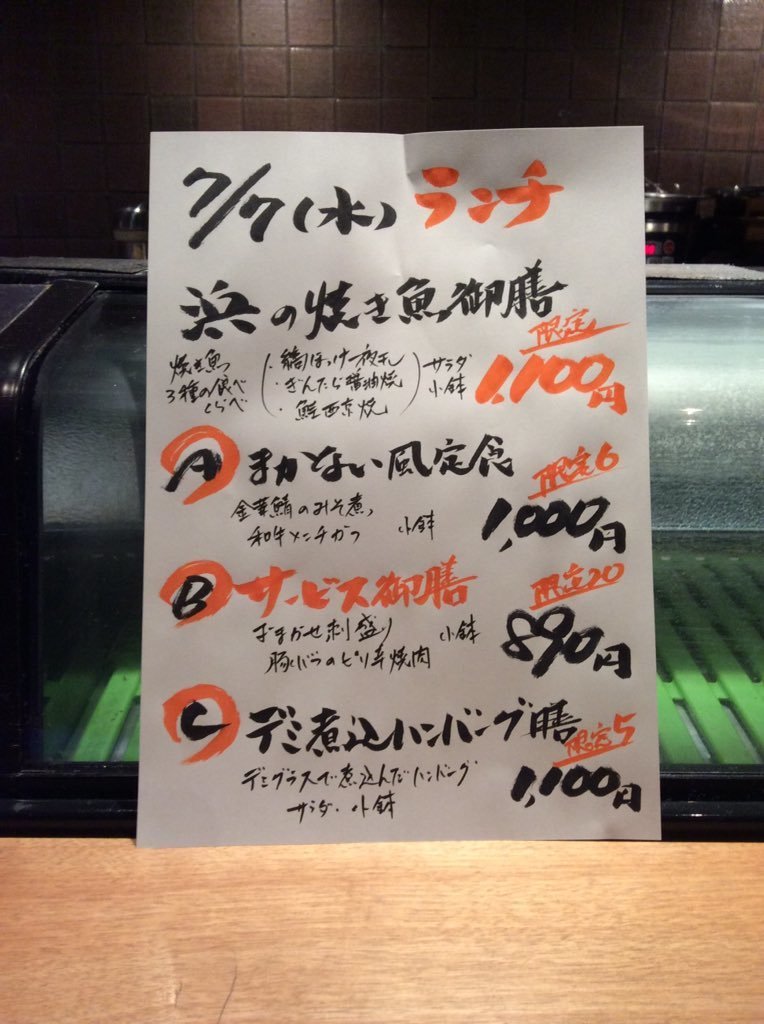 7/7(水) ランチ
浜の焼き魚御膳
限定
1,100円
焼き魚
3種の食べ
くらべ
・縞ほっけ一夜干し
・ぎんだら醤油焼
・鮭西京焼
サラダ
小鉢
A まかない風定食
限定6
金華鯖のみそ煮、
和牛メンチかつ 小鉢
1,000円
B サービス御膳
限定20
おまかせ刺盛り 小鉢
豚バラのピリ辛焼肉
890円
C デミ煮込ハンバーグ膳
限定5
デミグラスで煮込んだハンバーグ
サラダ・小鉢
1,100円